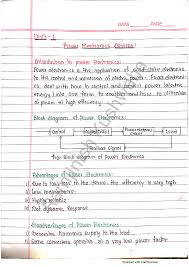 DATE
Unit - 1
Power Electronics Devices
Introduction to power Electronics:
Power electronics is the application of solid-state electronics
to the control and conversion of electric power. Power electronics
deal with how to control and convert power (electric
energy) from one form to another and how is
of high efficiency
Block diagram of Power Electronics:
Control
Power electronic Circuit
Load
Feedback signal
Fig:- Block diagram of Power Electronics
Advantages of Power Electronics:
i) Due to low loss in the device, the efficiency is very high
ii) Less maintenance
iii) Highly reliable
iv) Fast dynamic response
Disadvantages of Power Electronics:
i) Generates harmonics supply to the load
Some converters operates at a very low power factor